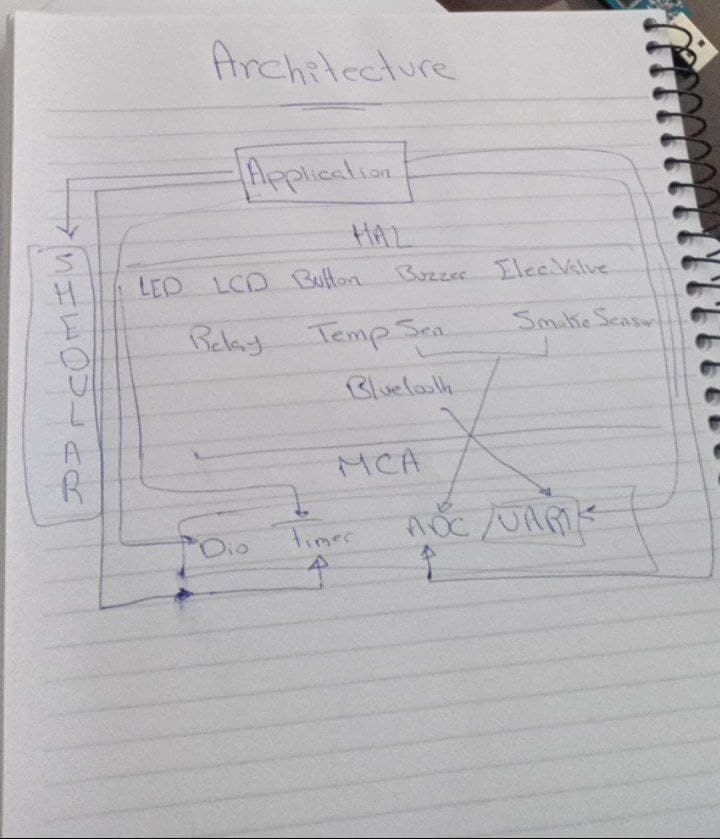 Architecture
Application
HAL
LED LCD Button Buzzer Elec.Valve
Relay Temp Sen Smoke Sensor
Bluetooth
MCA
Dio Timer ADC UART
SHEDULAR